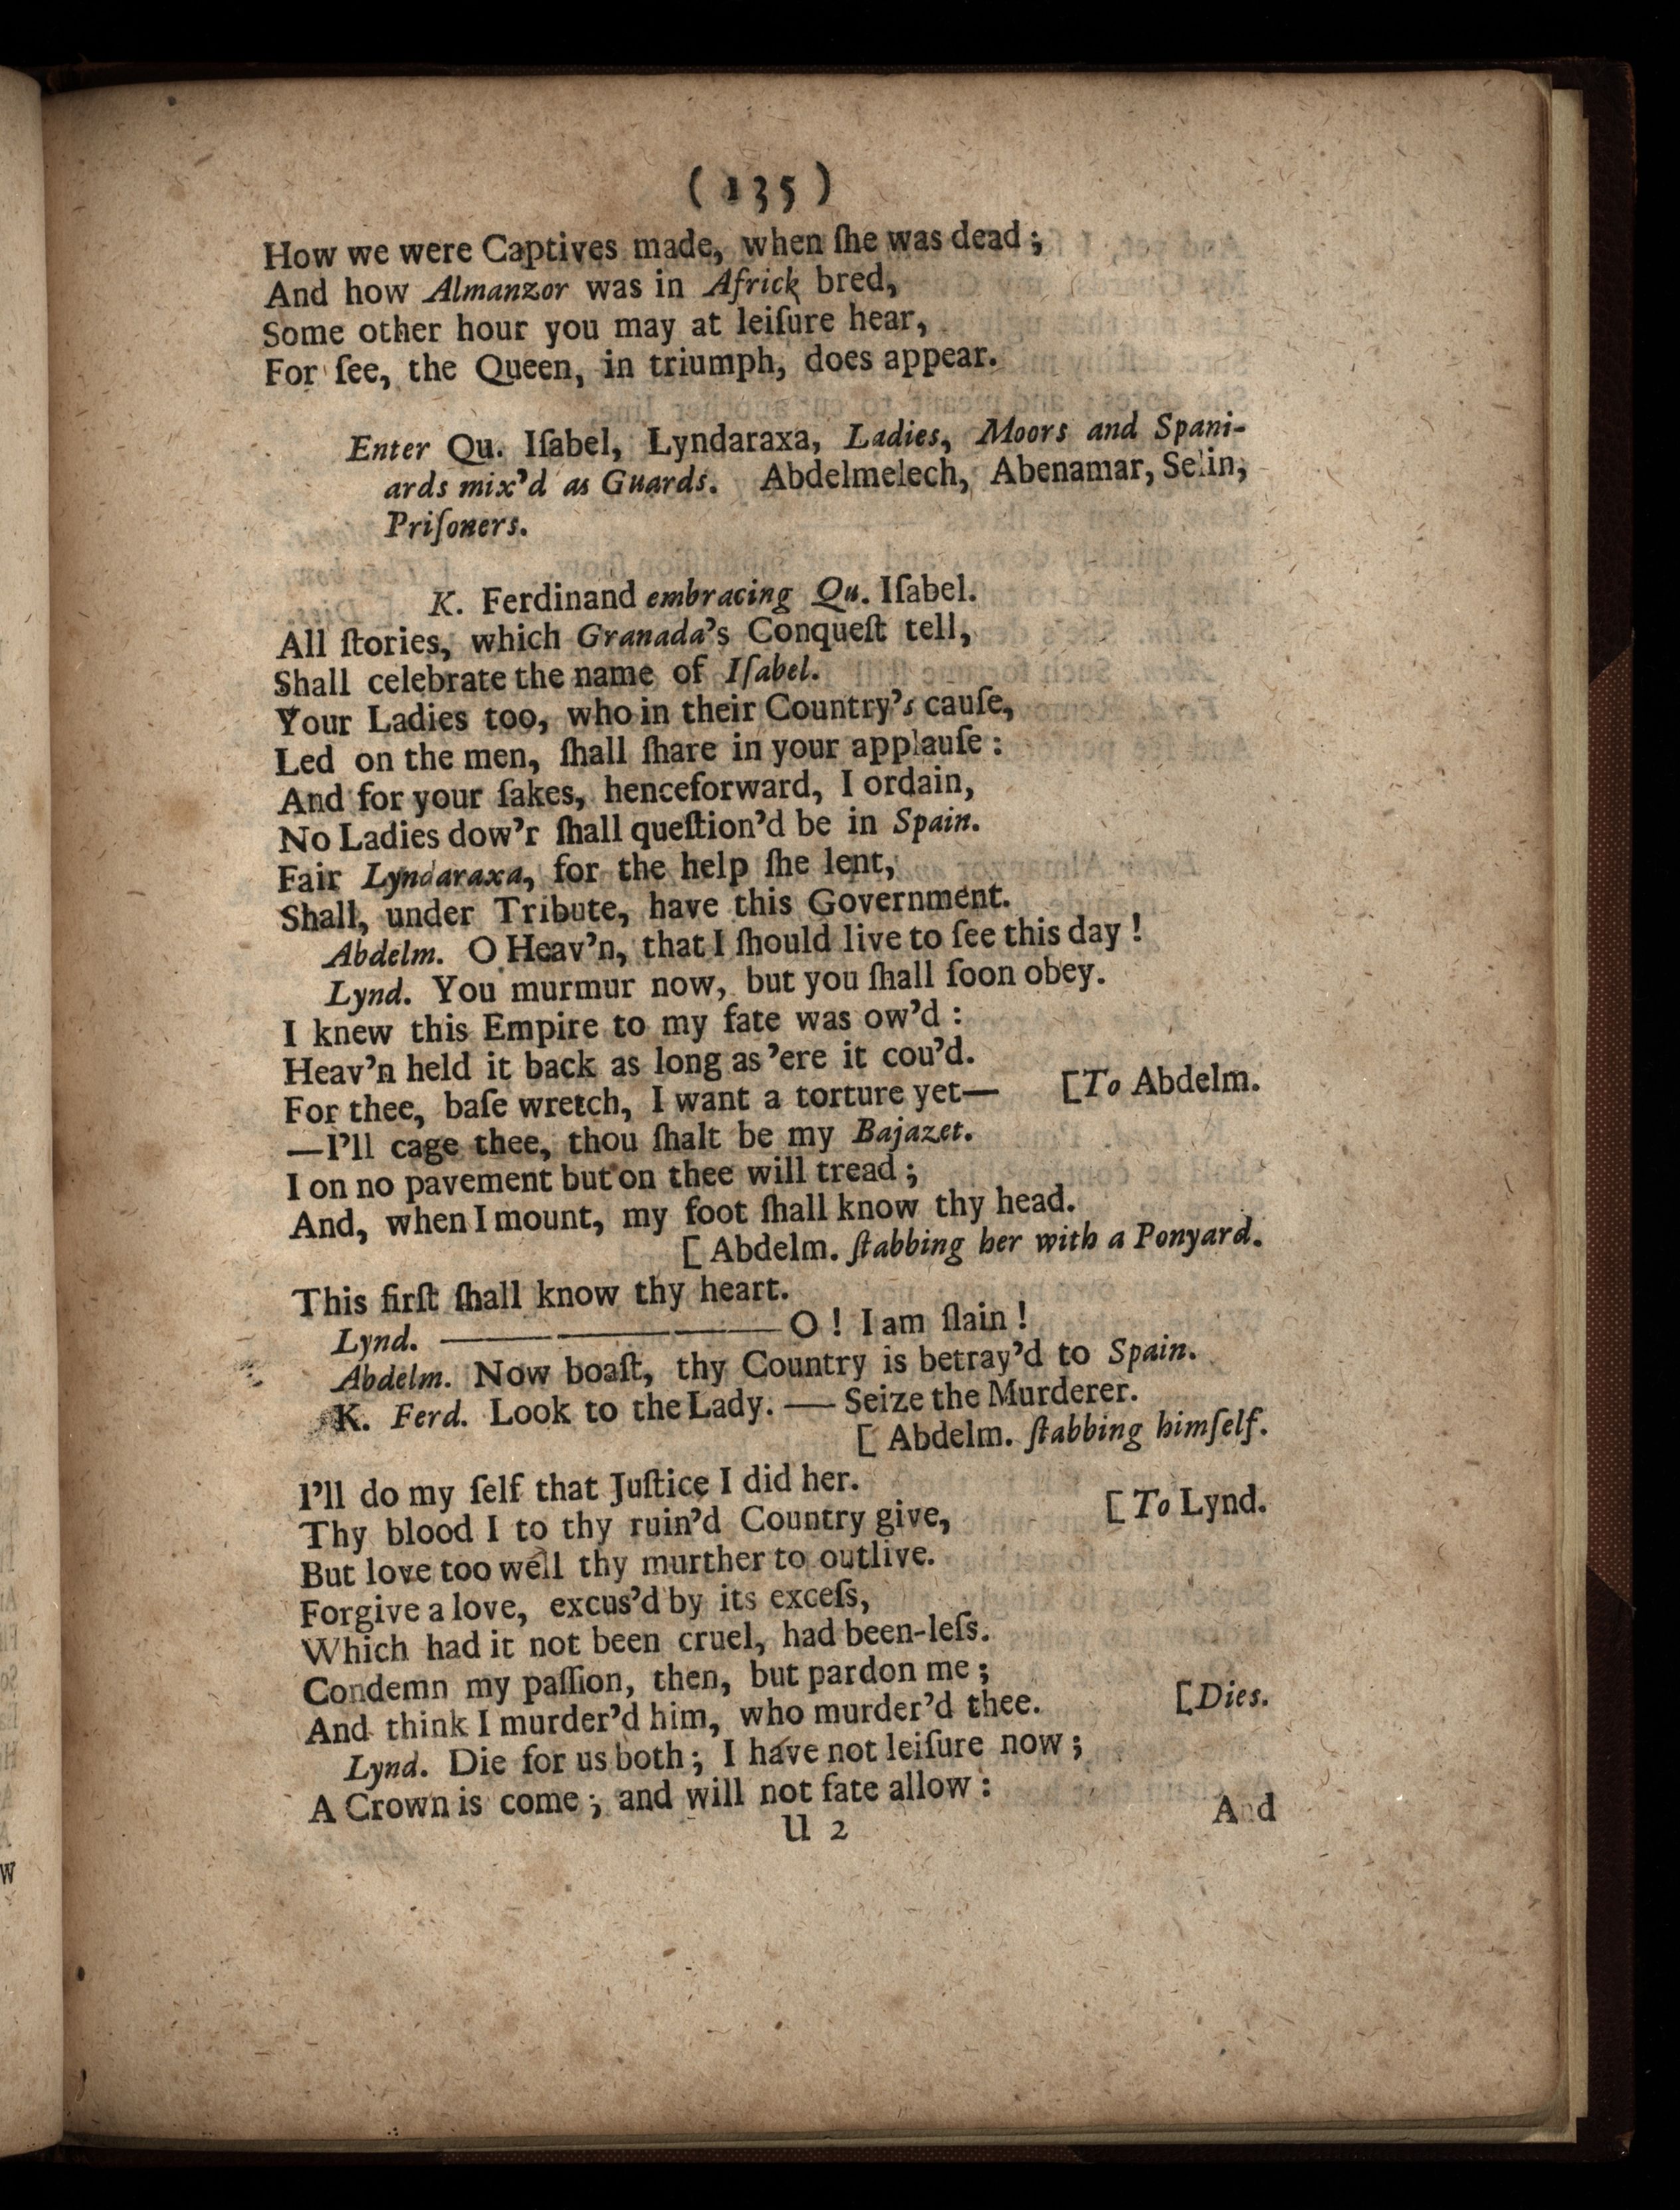 ( 135 )
How we were Captives made, when ſhe was dead;
And how Almanzor was in Africk bred,
Some other hour you may at leiſure hear,
For ſee, the Queen, in triumph, does appear.
Enter Qu. Iſabel, Lyndaraxa, Ladies, Moors and Spani-
ards mix'd as Guards. Abdelmelech, Abenamar, Selin,
Priſoners.
K. Ferdinand embracing Qu. Iſabel.
All ſtories, which Granada's Conqueſt tell,
Shall celebrate the name of Iſabel.
Your Ladies too, who in their Country's cauſe,
Led on the men, ſhall ſhare in your applauſe:
And for your ſakes, henceforward, I ordain,
No Ladies dow'r ſhall queſtion'd be in Spain.
Fair Lyndaraxa, for the help ſhe lent,
Shall, under Tribute, have this Government.
Abdelm. O Heav'n, that I ſhould live to ſee this day!
Lynd. You murmur now, but you ſhall ſoon obey.
I knew this Empire to my fate was ow'd:
Heav'n held it back as long as 'ere it cou'd.
For thee, baſe wretch, I want a torture yet— [To Abdelm.
—I'll cage thee, thou ſhalt be my Bajazet.
I on no pavement but on thee will tread;
And, when I mount, my foot ſhall know thy head.
[ Abdelm. ſtabbing her with a Ponyard.
This firſt ſhall know thy heart.
Lynd. ————————O! I am ſlain!
Abdelm. Now boaſt, thy Country is betray'd to Spain.
K. Ferd. Look to the Lady. — Seize the Murderer.
[ Abdelm. ſtabbing himſelf.
I'll do my ſelf that Juſtice I did her.
Thy blood I to thy ruin'd Country give, [ To Lynd.
But love too well thy murther to outlive.
Forgive a love, excus'd by its exceſs,
Which had it not been cruel, had been-leſs.
Condemn my paſſion, then, but pardon me;
And think I murder'd him, who murder'd thee. [Dies.
Lynd. Die for us both; I have not leiſure now;
A Crown is come; and will not fate allow:
U 2 And